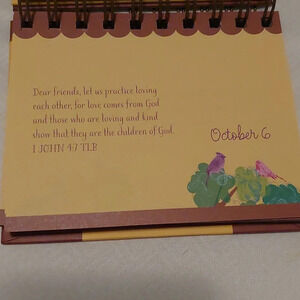 Dear friends, let us practice loving
each other, for love comes from God
and those who are loving and kind
show that they are the children of God.
1 JOHN 4:7 TLB
October 6